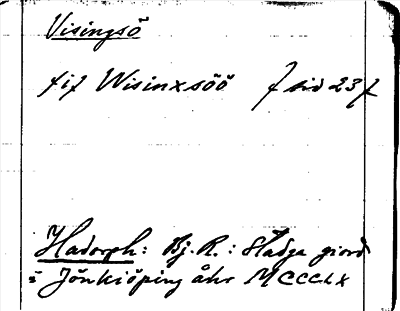 Visingsö
fif Wisinxsöö f sid 23 f
Hadorph: Bj. R.: Stadga giord
i Jönkiöping åhr MCCCLX